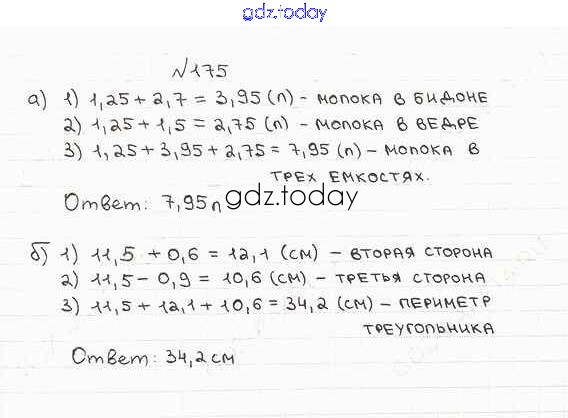 gdz.today
№175
а) 1) 1,25 + 2,7 = 3,95 (л) - молока в бидоне
2) 1,25 + 1,5 = 2,75 (л) - молока в ведре
3) 1,25 + 3,95 + 2,75 = 7,95 (л) - молока в
трех емкостях.
Ответ: 7,95 л
gdz.today
б) 1) 11,5 + 0,6 = 12,1 (см) - вторая сторона
2) 11,5 - 0,9 = 10,6 (см) - третья сторона
3) 11,5 + 12,1 + 10,6 = 34,2 (см) - периметр
треугольника
Ответ: 34,2 см